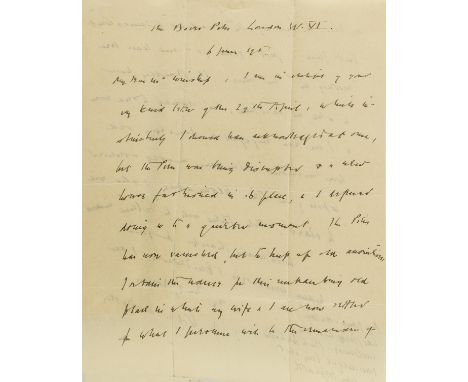 The Boors Pits, London W. VI.
6 June 195
My dear Mr Winship, I am in receipt of your
very kind letter of the 29th April, which in-
stinctively I should have acknowledged at once,
but the Pits was being disrupted & a new
house furnished in its place, & I deferred
doing so to a quieter moment. The Pits
has now vanished, but to keep up old associations
I retain the name for this enchanting old
place in which my wife & I are now settled
for what I presume will be the remainder of